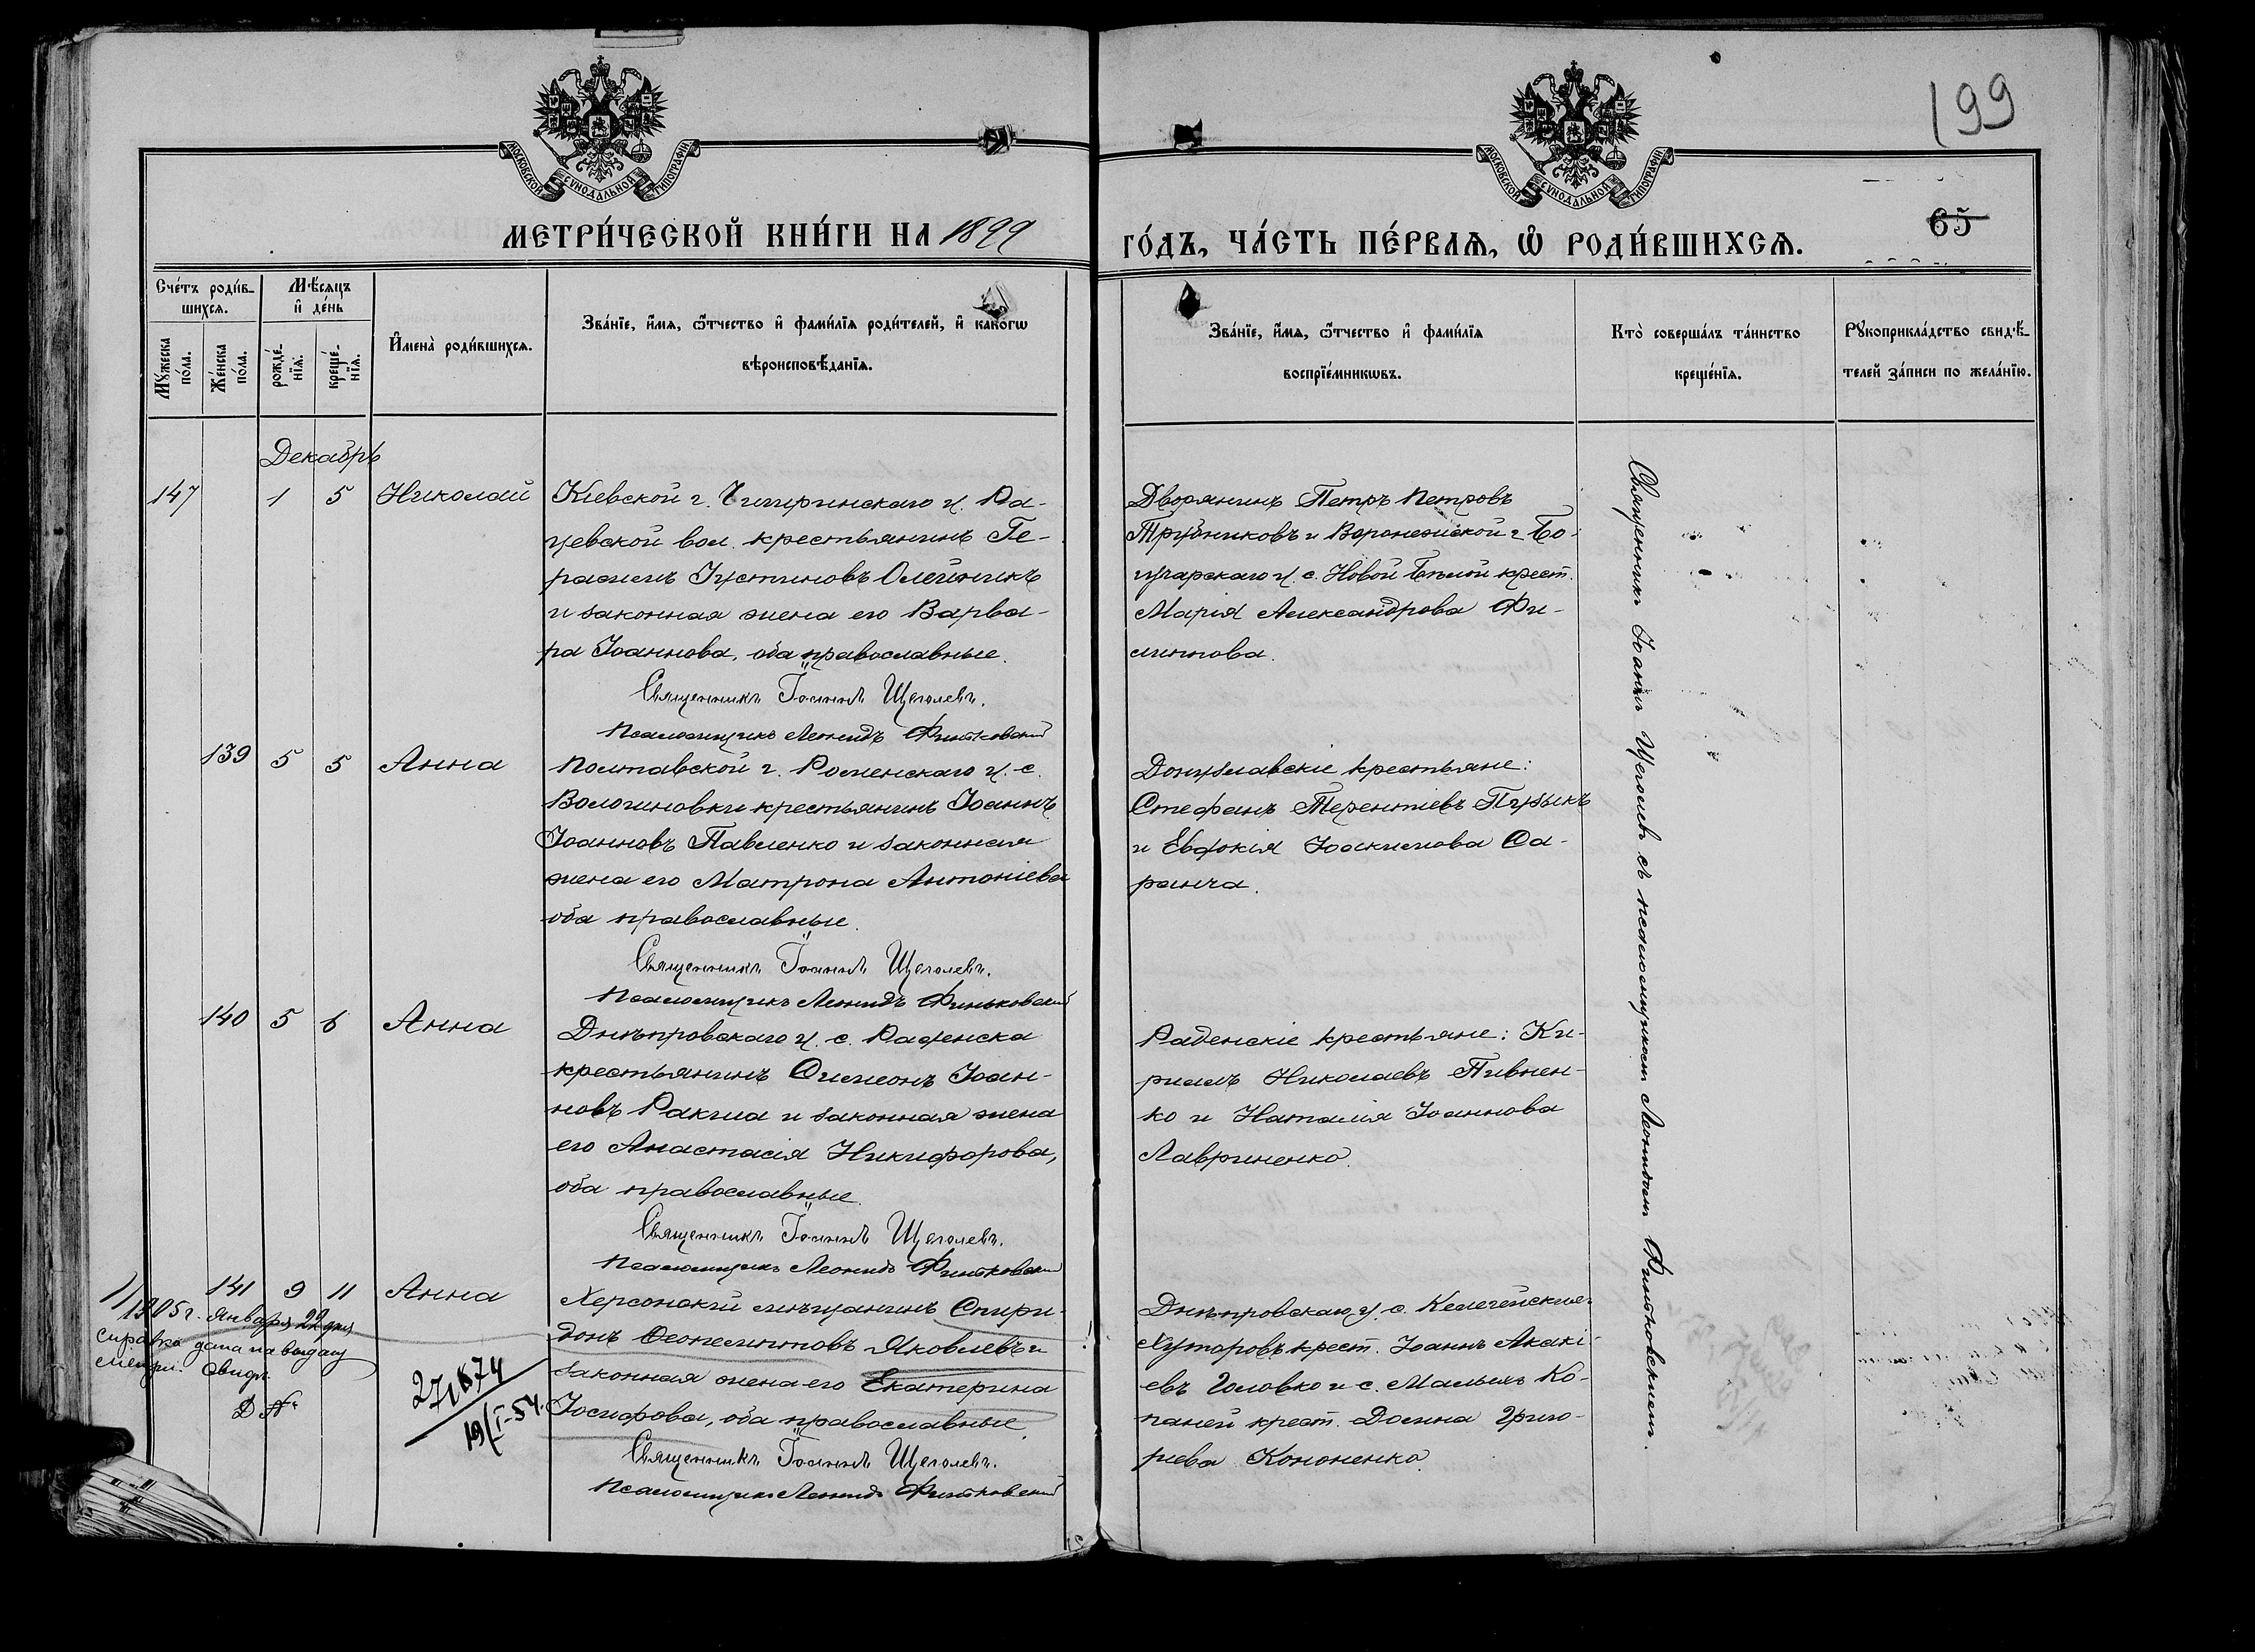 199
МОСКОВСКОЙ СѴНОДАЛЬНОЙ ТИПОГРАФІИ
МОСКОВСКОЙ СѴНОДАЛЬНОЙ ТИПОГРАФІИ
65
МЕТРИ́ЧЕСКОЙ КНИ́ГИ НА 1899
ГО́ДЪ, ЧА́СТЬ ПЕ́РВАѦ, Ѽ РОДИ́ВШИХСѦ.
Сче́тъ роди́в-
шихсѧ.
Мꙋ́жеска по́ла.
Же́нска по́ла.
Мѣ́сяцъ
и҆ де́нь
рожде́-нїѧ.
креще́-нїѧ.
И҆мена̀ роди́вшихсѧ.
Зва́нїе, и҆́мѧ, ѻ҆́тчество и҆ фами́лїѧ роди́телей, и҆ како́гѡ
вѣроисповѣ́данїѧ.
Зва́нїе, и҆́мѧ, ѻ҆́тчество и҆ фами́лїѧ
воспрїе́мникѡвъ.
Кто̀ соверша́лъ та́инство
креще́нїѧ.
Рꙋкоприкла́дство свидѣ́-
телей за́писи по жела́нїю.
Декабрь
147 1 5 Николай
Кіевской г. Чигиринскаго у. Ра-
цевской вол. крестьянинъ Ге-
расимъ Іустиновъ Олейникъ
и законная жена его Варва-
ра Іоаннова, оба православные.
Священникъ Іоаннъ Щеголевъ.
Псаломщикъ Леонидъ Финьковский
Дворянинъ Петръ Петровъ
Трубниковъ и Воронежской г. Бо-
гучарскаго у. с. Новой Бѣлой крест.
Марія Александрова Фи-
липпова.
139 5 5 Анна
Полтавской г. Роменскаго у. с.
Волошновки крестьянинъ Іоаннъ
Іоанновъ Павленко и законная
жена его Матрона Антоніева
оба православные.
Священникъ Іоаннъ Щеголевъ.
Псаломщикъ Леонидъ Финьковский
Донузлавскіе крестьяне:
Стефанъ Терентіевъ Пузыкъ
и Евдокія Іоакимова Са-
ранча.
140 5 6 Анна
Днѣпровскаго у. с. Раденска
крестьянинъ Симеонъ Іоан-
новъ Ракша и законная жена
его Анастасія Никифорова,
оба православные.
Священникъ Іоаннъ Щеголевъ.
Псаломщикъ Леонидъ Финьковский
Раденскіе крестьяне: Ки-
риллъ Николаевъ Пивнен-
ко и Наталія Іоаннова
Лавриненко.
141 9 11 Анна
Херсонскій мѣщанинъ Спири-
донъ Феонемптовъ Яковлевъ и
законная жена его Екатерина
Іосифова, оба православные.
Священникъ Іоаннъ Щеголевъ.
Псаломщикъ Леонидъ Финьковский
Днѣпровскаго у. с. Келегейскихъ
Хуторовъ крест. Іоаннъ Акакі-
евъ Головко и с. Малыхъ Ко-
паней крест. Домна Григо-
рьева Кононенко.
1905 г. Января 22 дня
справка дана на выдачу
метри. свидѣ.
271874
19/I-54.
Священникъ Іоаннъ Щеголевъ съ псаломщикомъ Леонидомъ Финьковскимъ.